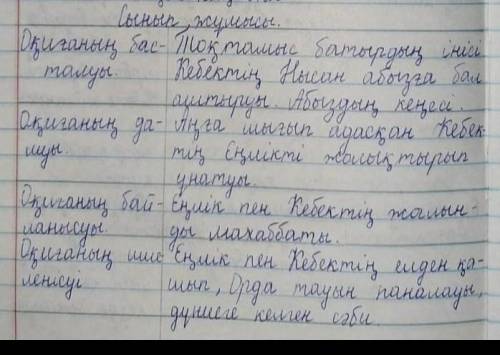 Сынып жұмысы.
Оқиғаның бас- Тоқтамыс батырдың інісі
талуы. Кебектің Нысан абызға бал
аштыруы. Абыздың кеңесі.
Оқиғаның да- Аңға шығып адасқан Кебек-
муы. тің Еңлікті жолықтырып
ұнатуы.
Оқиғаның бай- Еңлік пен Кебектің жалын-
ланысуы. ды махаббаты.
Оқиғаның шие- Еңлік пен Кебектің елден қа-
ленісуі шып, Орда тауын паналауы,
дүниеге келген сәби.